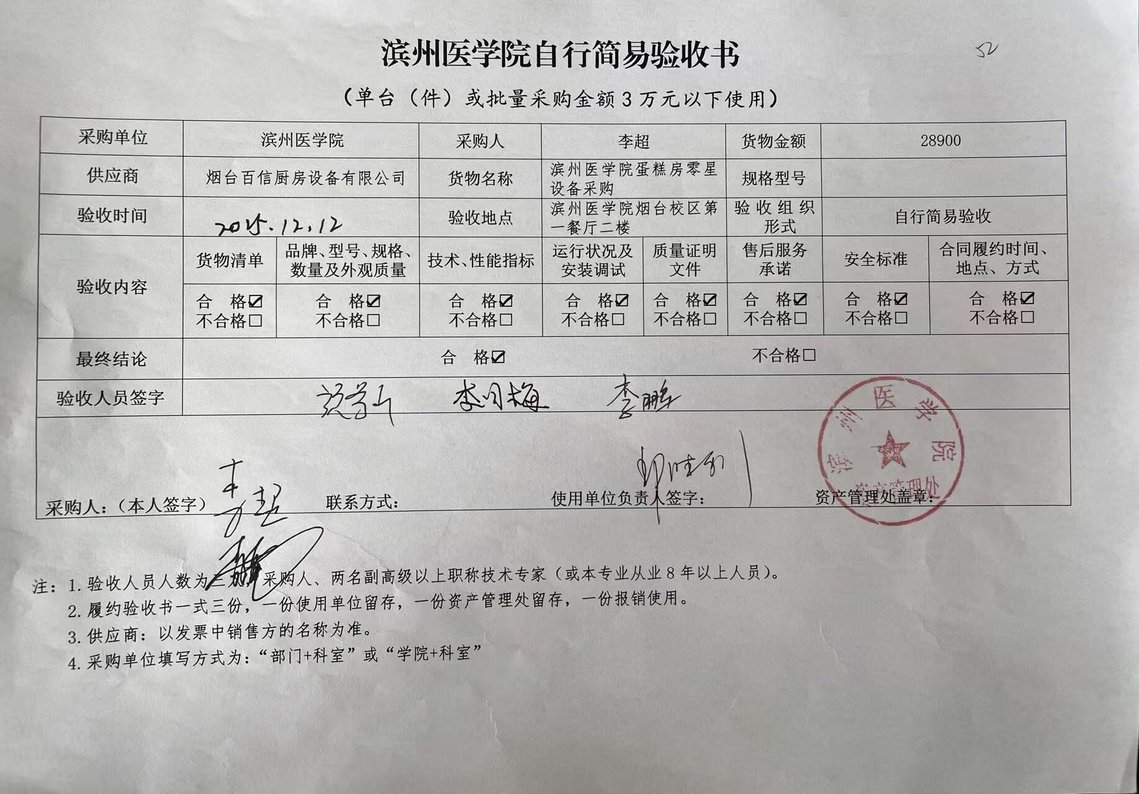 52
滨州医学院自行简易验收书
(单台(件)或批量采购金额3万元以下使用)
采购单位 滨州医学院 采购人 李超 货物金额 28900
供应商 烟台百信厨房设备有限公司 货物名称 滨州医学院蛋糕房零星设备采购 规格型号
验收时间 2025.12.12 验收地点 滨州医学院烟台校区第一餐厅二楼 验收组织形式 自行简易验收
验收内容 货物清单 品牌、型号、规格、数量及外观质量 技术、性能指标 运行状况及安装调试 质量证明文件 售后服务承诺 安全标准 合同履约时间、地点、方式
合 格☑ 合 格☑ 合 格☑ 合 格☑ 合 格☑ 合 格☑ 合 格☑ 合 格☑
不合格☐ 不合格☐ 不合格☐ 不合格☐ 不合格☐ 不合格☐ 不合格☐ 不合格☐
最终结论 合 格☑ 不合格☐
验收人员签字 李月梅 李鹏
采购人:(本人签字) 李超 联系方式: 使用单位负责人签字: 资产管理处盖章:
滨州医学院
资产管理处
注: 1.验收人员人数为三 采购人、两名副高级以上职称技术专家(或本专业从业8年以上人员)。
2.履约验收书一式三份,一份使用单位留存,一份资产管理处留存,一份报销使用。
3.供应商:以发票中销售方的名称为准。
4.采购单位填写方式为:“部门+科室”或“学院+科室”